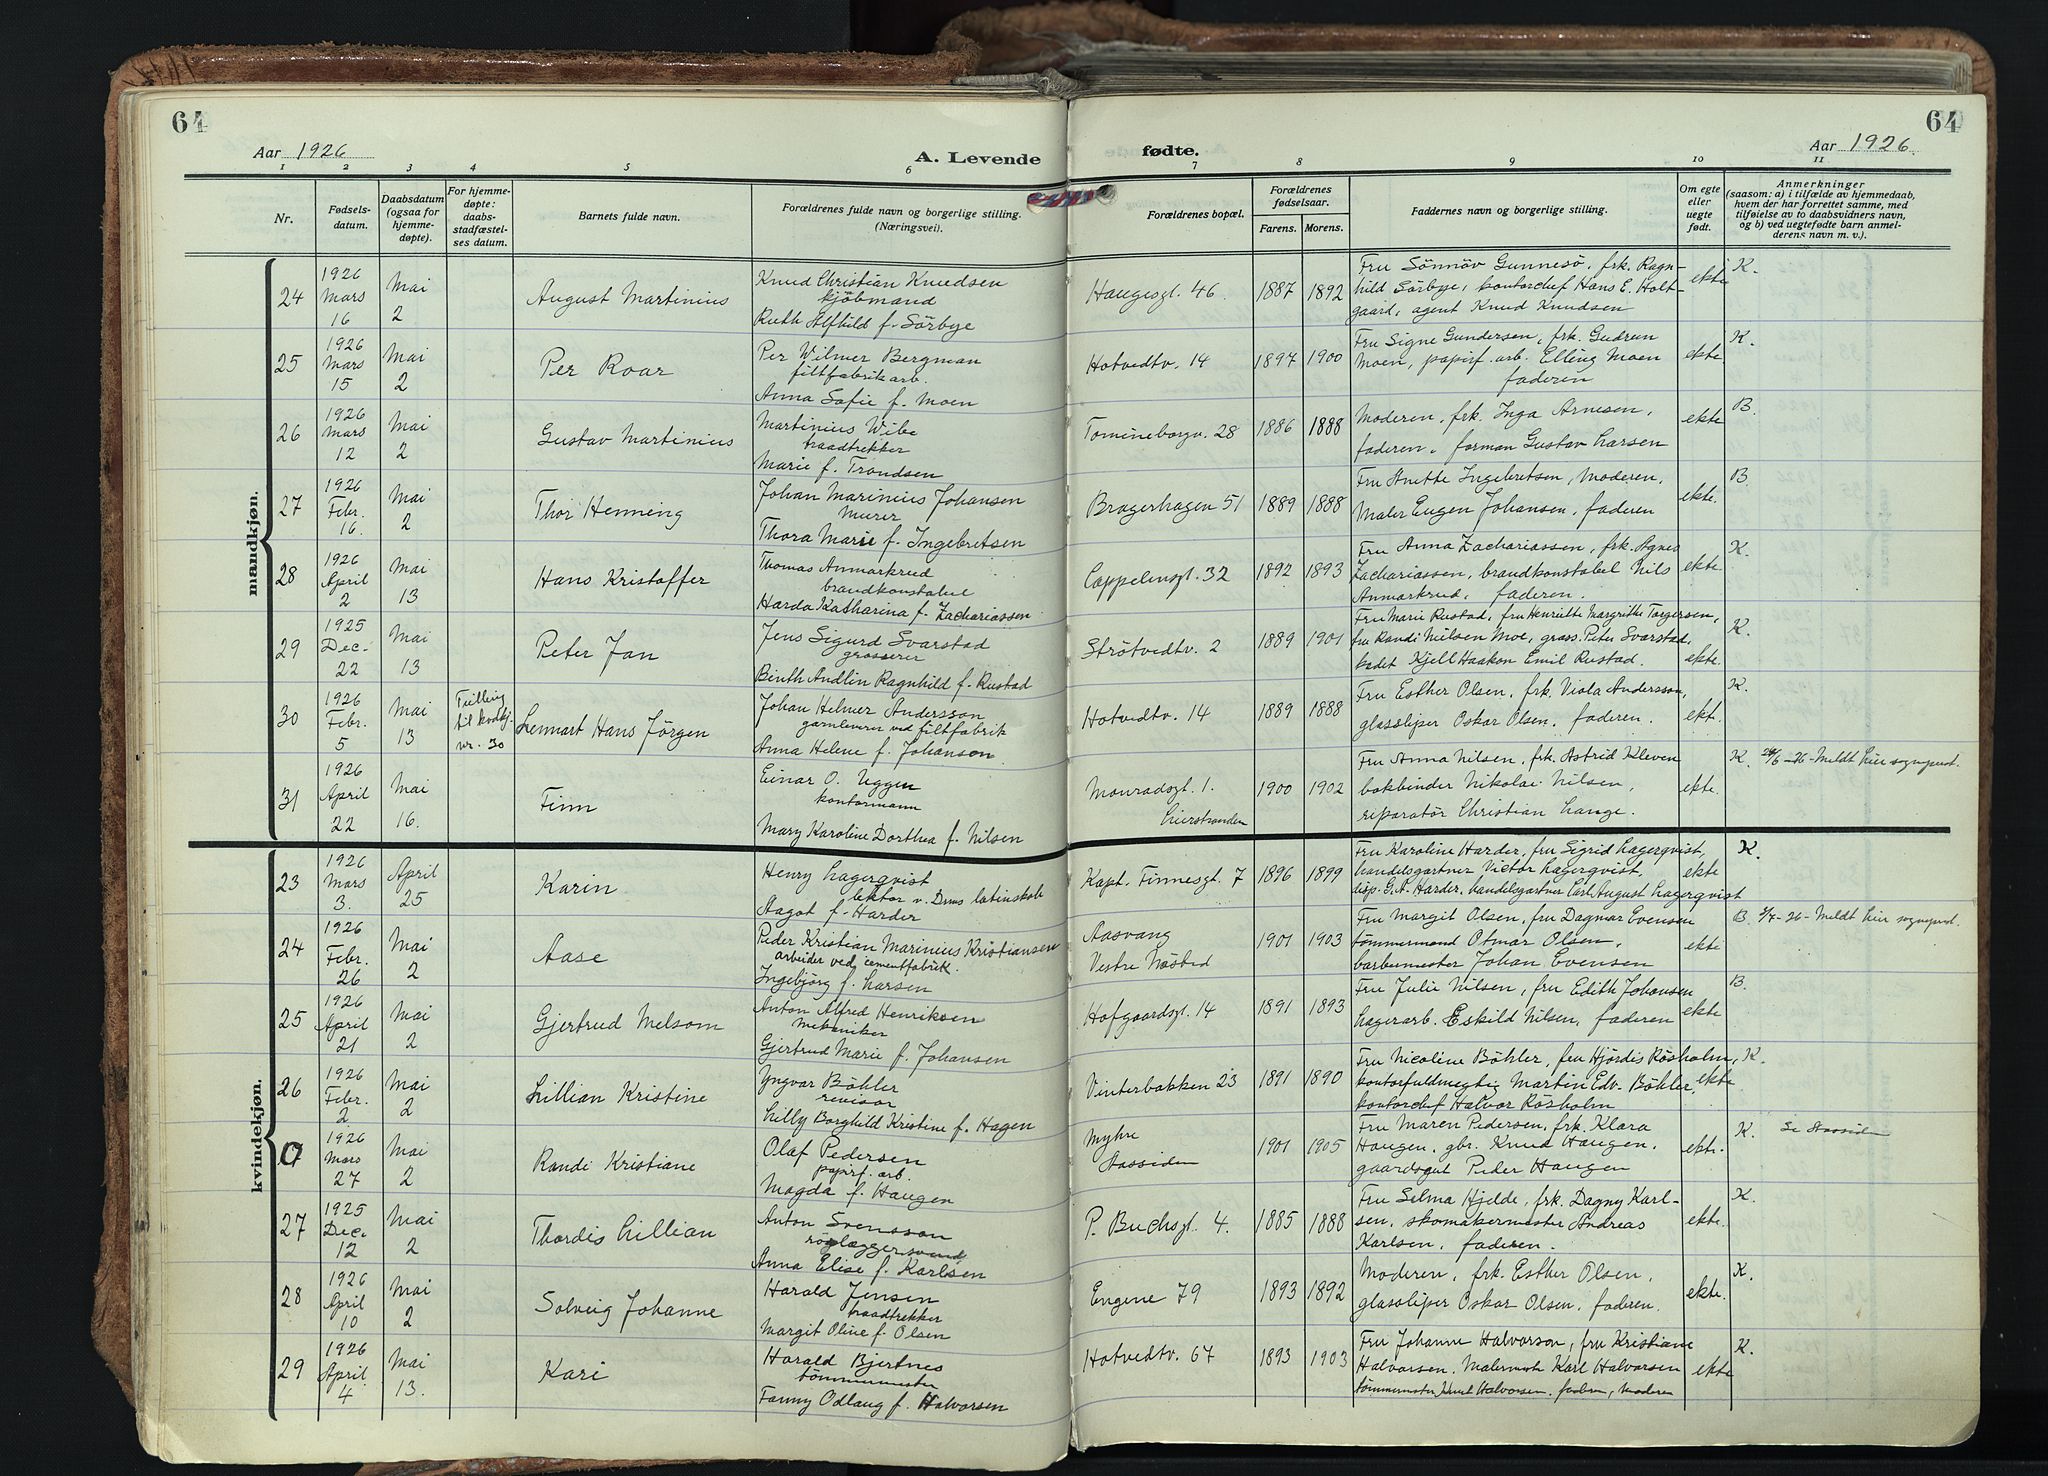 64
Aar 1926
A. Levende
fødte.
64
Aar 1926.
1 2 3 4 5 6 7 8 9 10 11
Nr.
Fødsels-
datum.
Daabsdatum
(ogsaa for
hjemme-
døpte).
For hjemme-
døpte:
daabs-
stadfæstel-
ses datum.
Barnets fulde navn.
Forældrenes fulde navn og borgerlige stilling.
(Næringsvei).
Forældrenes bopæl.
Forældrenes
fødselsaar.
Farens. Morens.
Faddernes navn og borgerlige stilling.
Om egte
eller
uegte
født.
Anmerkninger
(saasom: a) i tilfælde av hjemmedaab,
hvem der har forrettet samme, med
tilføielse av to daabsvidners navn,
og b) ved uegtefødte barn anmel-
derens navn m. v.).
mandkjøn.
24
1926
Mars
16
Mai
2
August Martinius
Knud Christian Knudsen
kjöbmand
Ruth Alfhild f. Sörbye
Haugesgt. 46.
1887 1892
Fru Sönnöv Gunnesö, frk. Ragn-
hild Sörbye, kontorchef Hans E. Holt-
gaard, agent Knud Knudsen
ekte
K.
25
1926
Mars
15
Mai
2
Per Roar
Per Wilmer Bergman
filtfabrikarb.
Anna Sofie f. Moen
Hotvedtv. 14
1897 1900
Fru Signe Gundersen, frk. Gudrun
Moen, papirf. arb. Elling Moen
faderen
ekte
K.
26
1926
Mars
12
Mai
2
Gustav Martinius
Martinius Wibe
traadtrekker
Marie f. Trondsen
Tomineborgv. 28
1886 1888
Moderen, frk. Inga Arnesen,
faderen, forman Gustav Larsen
ekte
B.
27
1926
Febr.
16.
Mai
2
Thor Henning
Johan Marinius Johansen
murer
Thora Marie f. Ingebretsen
Bragerhagen 51
1889 1888
Fru Anette Ingebretsen, Moderen,
Maler Eugen Johansen, faderen
ekte.
B.
28
1926
April
2
Mai
13
Hans Kristoffer
Thomas Anmarkrud
brandkonstabel
Harda Katharina f. Zachariassen
Cappelensgt. 32
1892 1893
Fru Anna Zachariassen, frk. Agnes
Zachariassen, brandkonstabel Nils
Anmarkrud, faderen.
ekte.
K.
29
1925
Dec.
22
Mai
13
Peter Jan
Jens Sigurd Svarstad
grosserer
Binth Andlin Ragnhild f. Rustad
Strötvedtv. 2
1889 1901
Fru Marie Rustad, fru Henriette Margrithe Torgersen,
fru Randi Nilsen Moe, gross. Peter Svarstad,
kadet Kjell Haakon Emil Rustad.
ekte.
K.
30
1926
Febr.
5
Mai
13
Tvilling
til kvindkj.
nr. 30
Lennart Hans Jörgen
Johan Helmer Andersson
garnleverer ved filtfabrik
Anna Helene f. Johanson.
Hotvedtv. 14
1889 1888
Fru Esther Olsen, frk. Viola Andersson,
glassliper Oskar Olsen, faderen.
ekt.
K.
31
1926
April
22
Mai
16.
Finn
Einar O. Uggen
kontormann
Mary Karoline Dorthea f. Nilsen
Monradsgt. 1.
Lierstranden
1900 1902
Fru Anna Nilsen, frk. Astrid Kleven
bokbinder Nikolai Nilsen,
reparatør Christian Lange.
ekte.
K. 24/6-26-Meldt Lier sognepr.
kvindekjøn.
23
1926
Mars
3.
April
25
Karin
Henry Lagerqvist
lektor v. Drms latinskole
Aagot f. Harder
Kapt. Finnesgt. 7
1896 1899
Fru Karoline Harder, fru Sigrid Lagerqvist,
handelsgartner Victor Lagerqvist,
disp. G.A. Harder, handelsgartner Carl August Lagerqvist
ekte
K.
24
1926
Febr.
26
Mai
2
Aase
Peder Kristian Marinius Kristiansen
arbeider ved cementfabrik.
Ingebjörg f. Larsen
Aasvang
Vestre Nøsted
1901 1903
Fru Margit Olsen, fru Dagmar Evensen
tömmermand Otmar Olsen,
barbermester Johan Evensen
ekte
B 2/7-26-Meldt Lier sognepr.
25
1926
April
21
Mai
2
Gjertrud Melsom
Anton Alfred Henriksen
mekaniker
Gjertrud Marie f. Johansen
Hofgaardsgt. 14
1891 1893
Fru Julie Nilsen, fru Edith Johansen
Lagerarb. Eskild Nilsen, faderen
ekte
B.
26
1926
Febr.
2
Mai
2
Lillian Kristine
Yngvar Böhler
revisor
Lilly Borghild Kristine f. Hagen
Vinterbakken 23
1891 1890
Fru Nicoline Böhler, fru Hjördis Rösholm,
kontorfuldmegtig Martin Edv. Böhler,
kontorchef Halvor Rösholm
ekte
K.
0
1926
Mars
27
Mai
2
Randi Kristiane
Olaf Pedersen
papirf. arb.
Magda f. Haugen
Myhre
Aassiden
1901 1905
Fru Maren Pedersen, frk. Klara
Haugen, gbr. Knud Haugen,
gaardsgut Peder Haugen
ekte.
K. Se Aassiden
27
1925
Dec.
12
Mai
2
Thordis Lillian
Anton Svensson
rörlæggersvend
Anna Elise f. Karlsen
P. Buchsgt. 4.
1885 1888
Fru Selma Hjelde, frk. Dagny Karl-
sen, skomakermester Andreas
Karlsen, faderen.
ekte.
K.
28
1926
April
10
Mai
2
Solveig Johanne
Harald Jensen
traadtrekker
Margit Oline f. Olsen
Engene 79
1893 1892
Moderen, frk. Esther Olsen,
glassliper Oskar Olsen, faderen.
ekte.
K.
29
1926
April
4
Mai
13.
Kari
Harald Bjertnes
tömmermester
Fanny Odlaug f. Halvorsen
Hotvedtv. 67
1893 1903
Fru Johanne Halvorson, fru Kristiane
Halvorsen, Malermest. Karl Halvorsen
tömmermester Knut Halvorsen, faderen, Moderen
ekte
K.